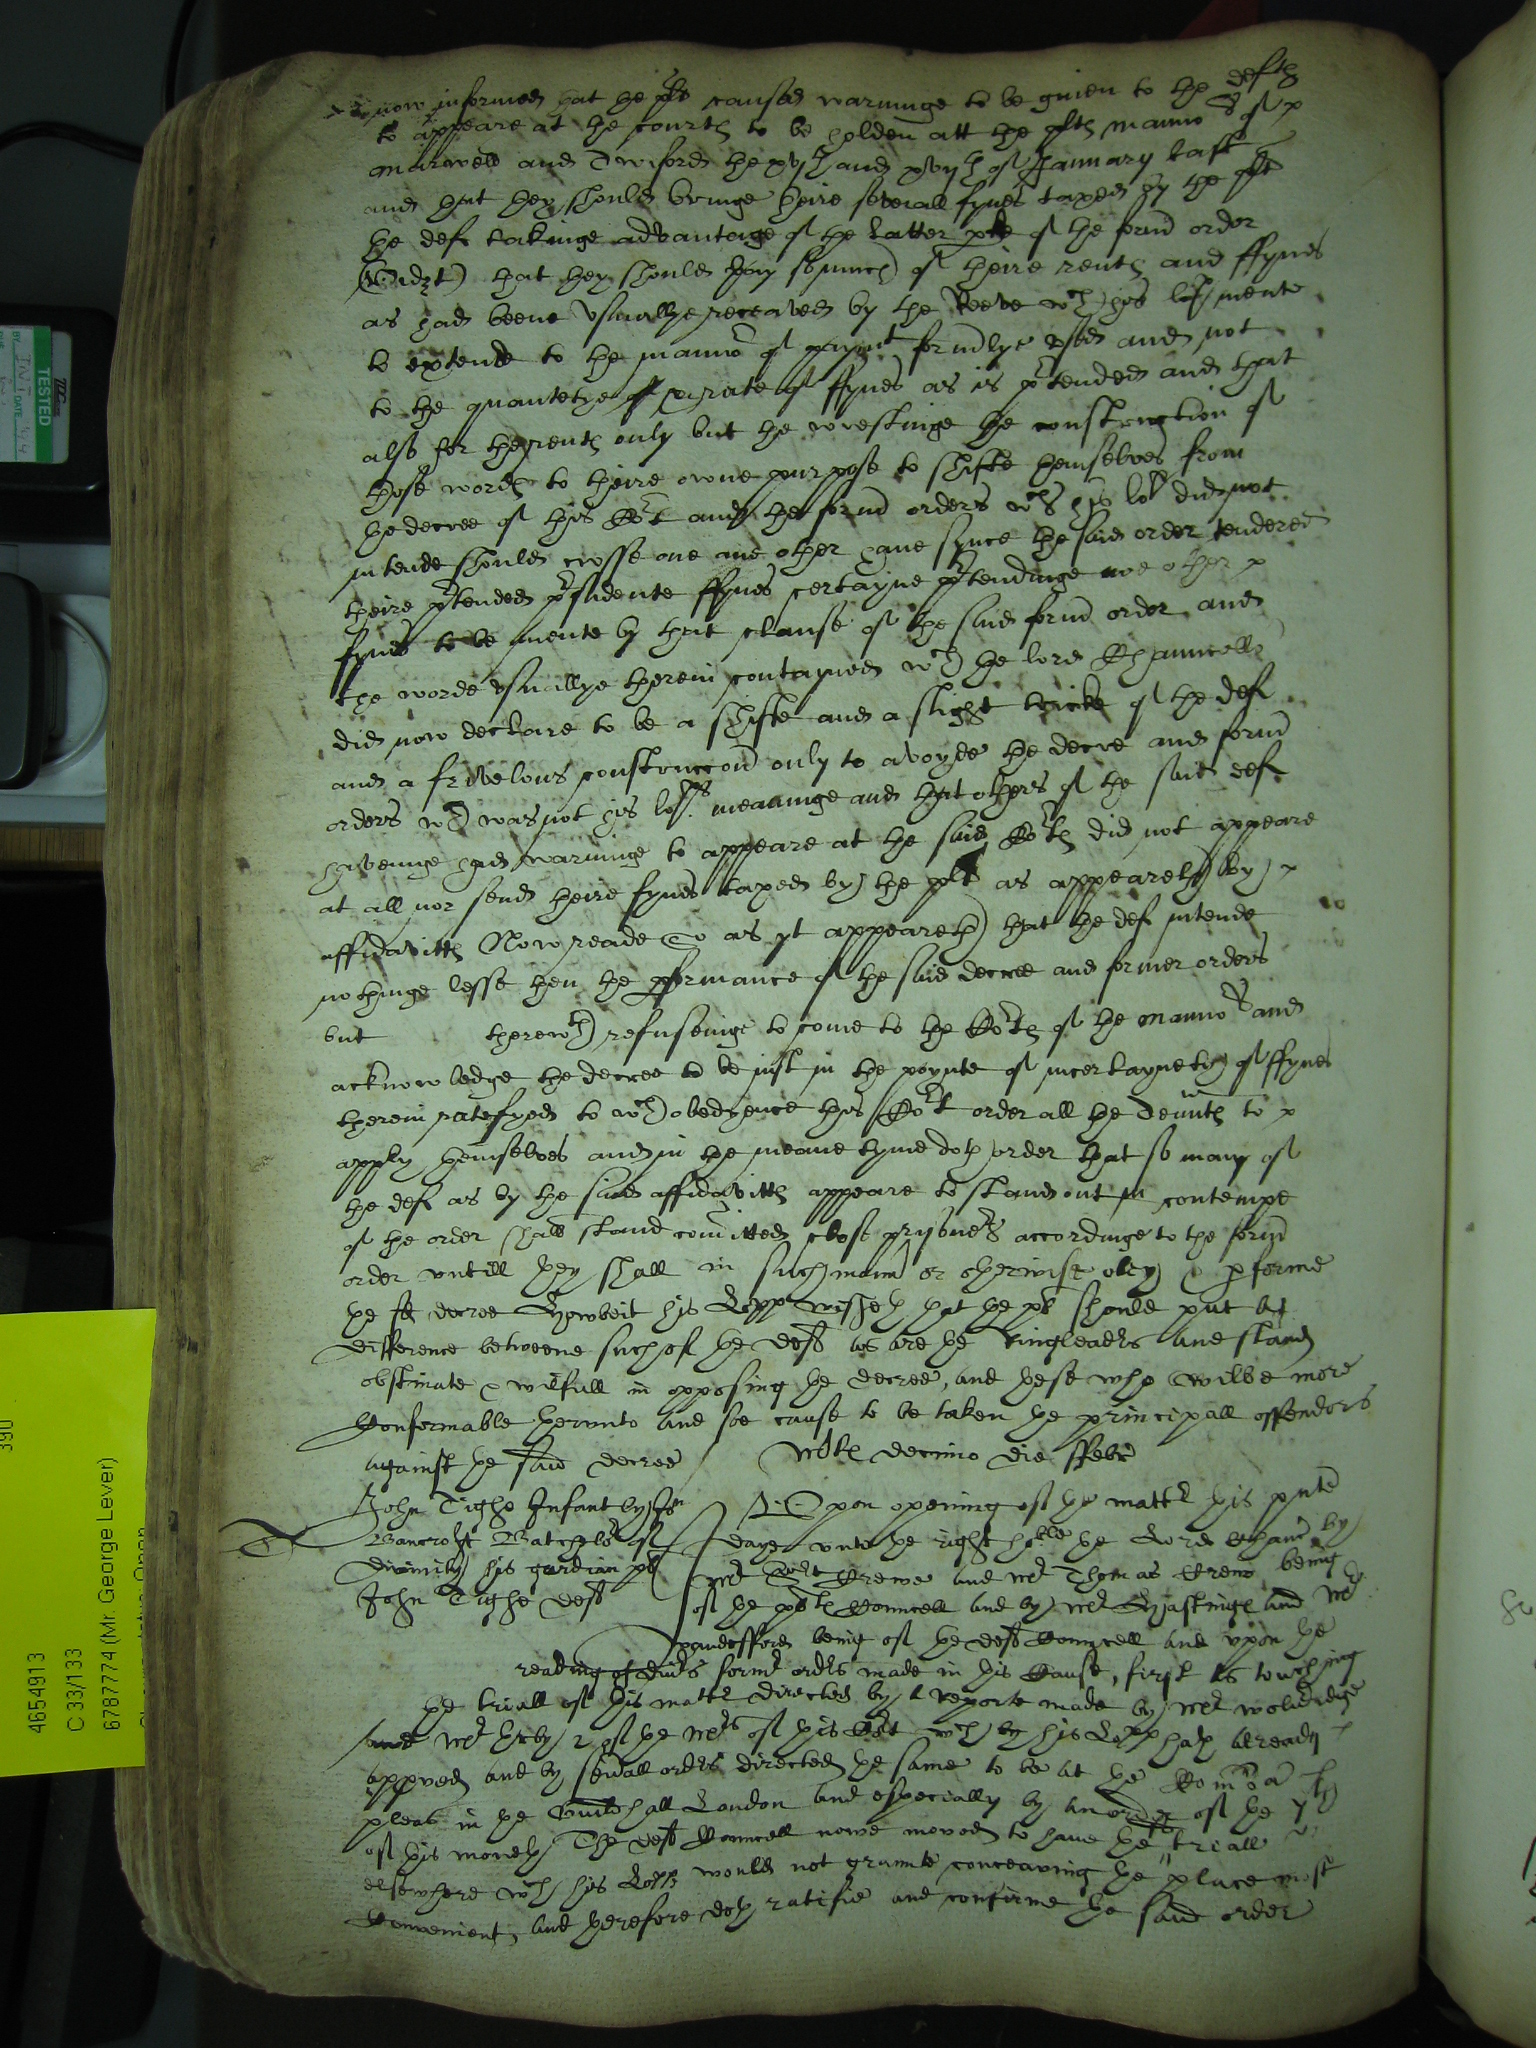 now informed that the plts caused warninge to be given to the defts
to appeare at the courts to be holden att the plts mannors of
Marwell and Twiford the xvjth and xvijth of January last
and that they should bringe theire severall fynes taxed by the plt
the defts takinge advantage of the latter pte of the formr order
(vidzt) that they should pay somuch of theire rents and ffynes
as had beene usuallye receaved by the Reeve wch his lop mente
to extende to the mannr of paymt formrlye used and not
to the quantetye or rate of ffynes as is prtended and that
also for the rents only but the wrestinge the construction of
those words to theire owne purpose to shifte themselves from
the decree of this Cort and the formr orders wch his lop did not
intende should crosse one another have synce the said order tendered
theire prtended ffynes certayne prtendinge noe other
fynes to be mente by that clause of the said formr order and
the worde usuallye therein contayned wch the lord Chauncellr
did now declare to be a shifte and a slight tricke of the defts
and a frivelous construccon only to avoyde the decree and formr
orders wch was not his lops meaninge and that others of the said defts
haveinge had warninge to appeare at the said Corts did not appeare
at all nor send theire fynes taxed by the plt as appeareth by
affidavitts Now reade so as yt appeareth that the defts intende
nothinge lesse then the pformance of the said decree and former orders
but therewth refuseinge to come to the Corts of the mannors and
acknowledge the decree to be just in the poynte of incertaynety of ffynes
therein ratefyed to wch obedyence this Cort order all the tennts to
apply themselves and in the meane tyme doth order that so many of
the defts as by the said affidavitts appeare to stand out in contempt
of the order shall stand comitted close prysoners accordinge to the formr
order untill they shall in such mannr or otherwise obey & pforme
the sd decree Howbeit his Lopp wisheth that the plt should put a
difference betweene such of the defts as are the ringleaders and stand
obstinate & wilfull in opposing the decree, and these who wilbe more
Conformable therunto and soe cause to be taken the principall offendors
against the said decree Mrtis decimo die ffebr
John Tighe Infant by Jn
Bancroft Batchelor of
Divinity his gardian plt
John Tighe deft
T
Upon opening of the mattr this prnte
daye unto the right hoble the Lord Chanr by
Mr Robt Crewe and Mr Thomas Crewe being
of the plts Councell and by Mr Hastings and Mr
being of the defts Councell and upon the
reading of divrs formr ordrs made in this Cause, first as touching
the triall of this mattr directed by a reporte made by Mr Wolveridge
and Mr 2 of the Mrs of this Cort wch by his Lopp hath already
appved and by sevrall ordrs directed the same to be at the Comon
pleas in the Guildhall London and especially by an order of the
of this moneth The defts Councell nowe moved to have the triall
elsewhere wch his Lopp would not graunte conceaving the place most
Convenient, and therefore doth ratifie and confirme the said order
TESTED
DATE
390
4654913
C 33/133
6787774 (Mr. George Lever)